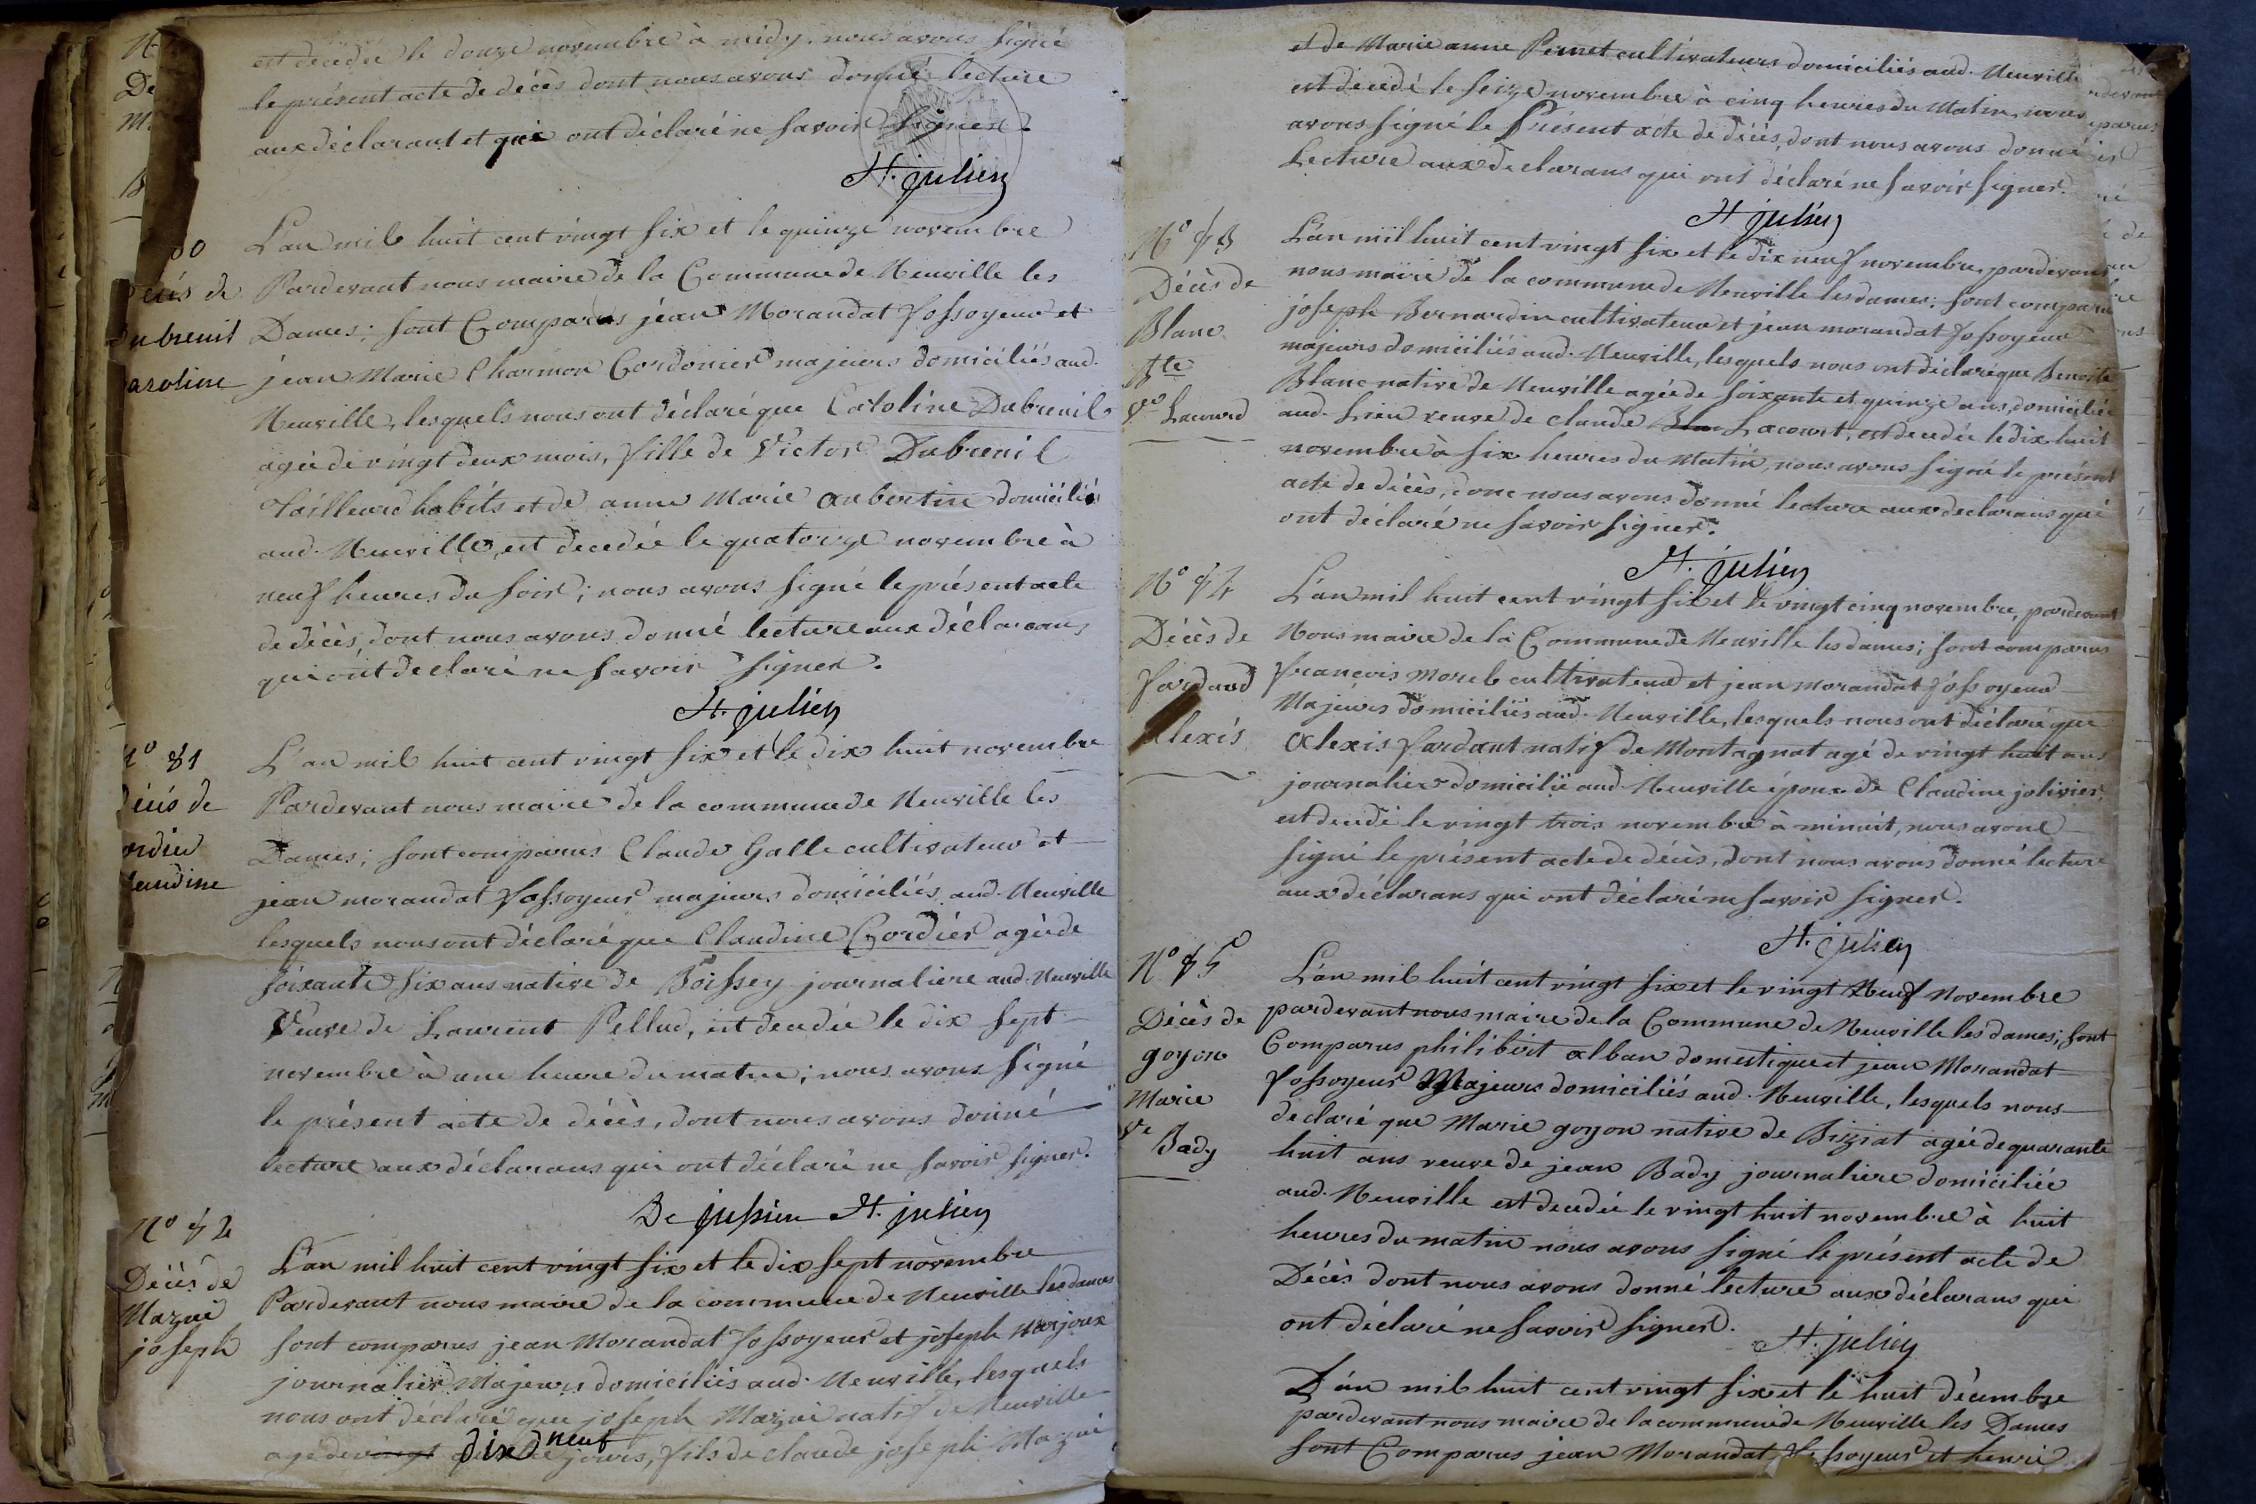 est décédée le douze novembre à midy. nous avons signé
le présent acte de décès dont nous avons donné lecture
aux déclarant et qui ont déclaré ne savoir signer.
St. julien
80
décès de
dubreuil
caroline
L'an mil huit cent vingt six et le quinze novembre
Pardevant nous maire de la Commune de Neuville les
Dames; sont Comparus jean Morandat fossoyeur et
jean Marie Charmon Cordonier majeurs domiciliés aud.
Neuville, lesquels nous ont déclaré que Caroline Dubreuil
agée de vingt deux mois, fille de Victor Dubreuil
tailleur d'habits et de anne Marie aubertin domicilié
aud. Neuville, est decedée le quatorze novembre à
neuf heures du soir; nous avons signé le présent acte
de décès, dont nous avons donné lecture aux déclarans
qui ont declaré ne savoir signer.
St. julien
N° 81
Décés de
Cordier
Claudine
L'an mil huit cent vingt six et le dix huit novembre
Pardevant nous maire de la commune de Neuville les
Dames; sont comparus Claude Galle cultivateur et
jean morandat fossoyeur majeurs domiciliés aud. Neuville
lesquels nous ont déclaré que Claudine Cordier agée de
soixante six ans native de Boissey journaliere aud. Neuville
Veuve de Laurent Pellud, est decedée le dix sept
novembre à une heure du matin; nous avons signé
le présent acte de décès, dont nous avons donné
lecture aux déclarans qui ont déclaré ne savoir signer.
De jussieu St. julien
N° 82
Décès de
Mazué
joseph
L'an mil huit cent vingt six et le dix sept novembre
Pardevant nous maire de la commune de Neuville les dames
sont comparus jean Morandat fossoyeur et joseph Marjoux
journalier Majeurs domiciliés aud. Neuville, lesquels
nous ont déclaré que joseph Mazué natif de Neuville
agé de vingt dix neuf jours, fils de claude joseph Mazué
et de Marie anne Pernet cultivateurs domiciliés aud. Neuville
est décedé le seize novembre à cinq heures du Matin, nous
avons signé le Présent acte de décès, dont nous avons donné
Lecture aux declarans qui ont déclaré ne savoir signer.
St julien
N° 83
Décès de
Blanc
Bte
Ve Lacourd
L'an mil huit cent vingt six et le dix neuf novembre, pardevant
nous maire de la commune de Neuville les dames; sont comparus
joseph Bernardin cultivateur et jean morandat fossoyeur
majeurs domiciliés aud. Neuville, lesquels nous ont déclaré que Benoite
Blanc native de Neuville agée de soixante et quinze ans, domiciliée
aud. Lieu veuve de claude Lacourt, est decedée le dix huit
novembre à six heures du Matin, nous avons signé le présent
acte de décès, donc nous avons donné lecture aux declarans qui
ont déclaré ne savoir signer.
St. julien
N° 84
Décès de
fardaud
alexis
L'an mil huit cent vingt six et le vingt cinq novembre, pardevant
Nous maire de la Commune de Neuville les dames; sont comparus
françois Morel cultivateur et jean morandat fossoyeur
Majeurs domiciliés aud. Neuville, lesquels nous ont déclaré que
alexis fardant natif de Montagnat agé de vingt huit ans
journalier domicilié aud. Neuville époux de Claudine jolivier,
est decedé le vingt trois novembre à minuit, nous avons
signé le présent acte de décès, dont nous avons donné lecture
aux déclarans qui ont déclaré ne savoir signer.
St. julien
N° 85
Décès de
goyon
Marie
Ve
Bady
L'an mil huit cent vingt six et le vingt Neuf Novembre
pardevant nous maire de la Commune de Neuville les dames; sont
Comparus philibert alban domestique et jean Morandat
fossoyeur Majeurs domiciliés aud. Neuville, lesquels nous
declaré que Marie goyon native de Biziat agée de quarante
huit ans veuve de jean Bady journaliere domiciliée
aud. Neuville est decedée le vingt huit novembre à huit
heures du matin nous avons signé le présent acte de
Décès dont nous avons donné lecture aux déclarans qui
ont déclaré ne savoir signer.
St. julien
L'an mil huit cent vingt six et le huit décembre
pardevant nous maire de la commune de Neuville les Dames
sont Comparus jean Morandat fossoyeur et henri